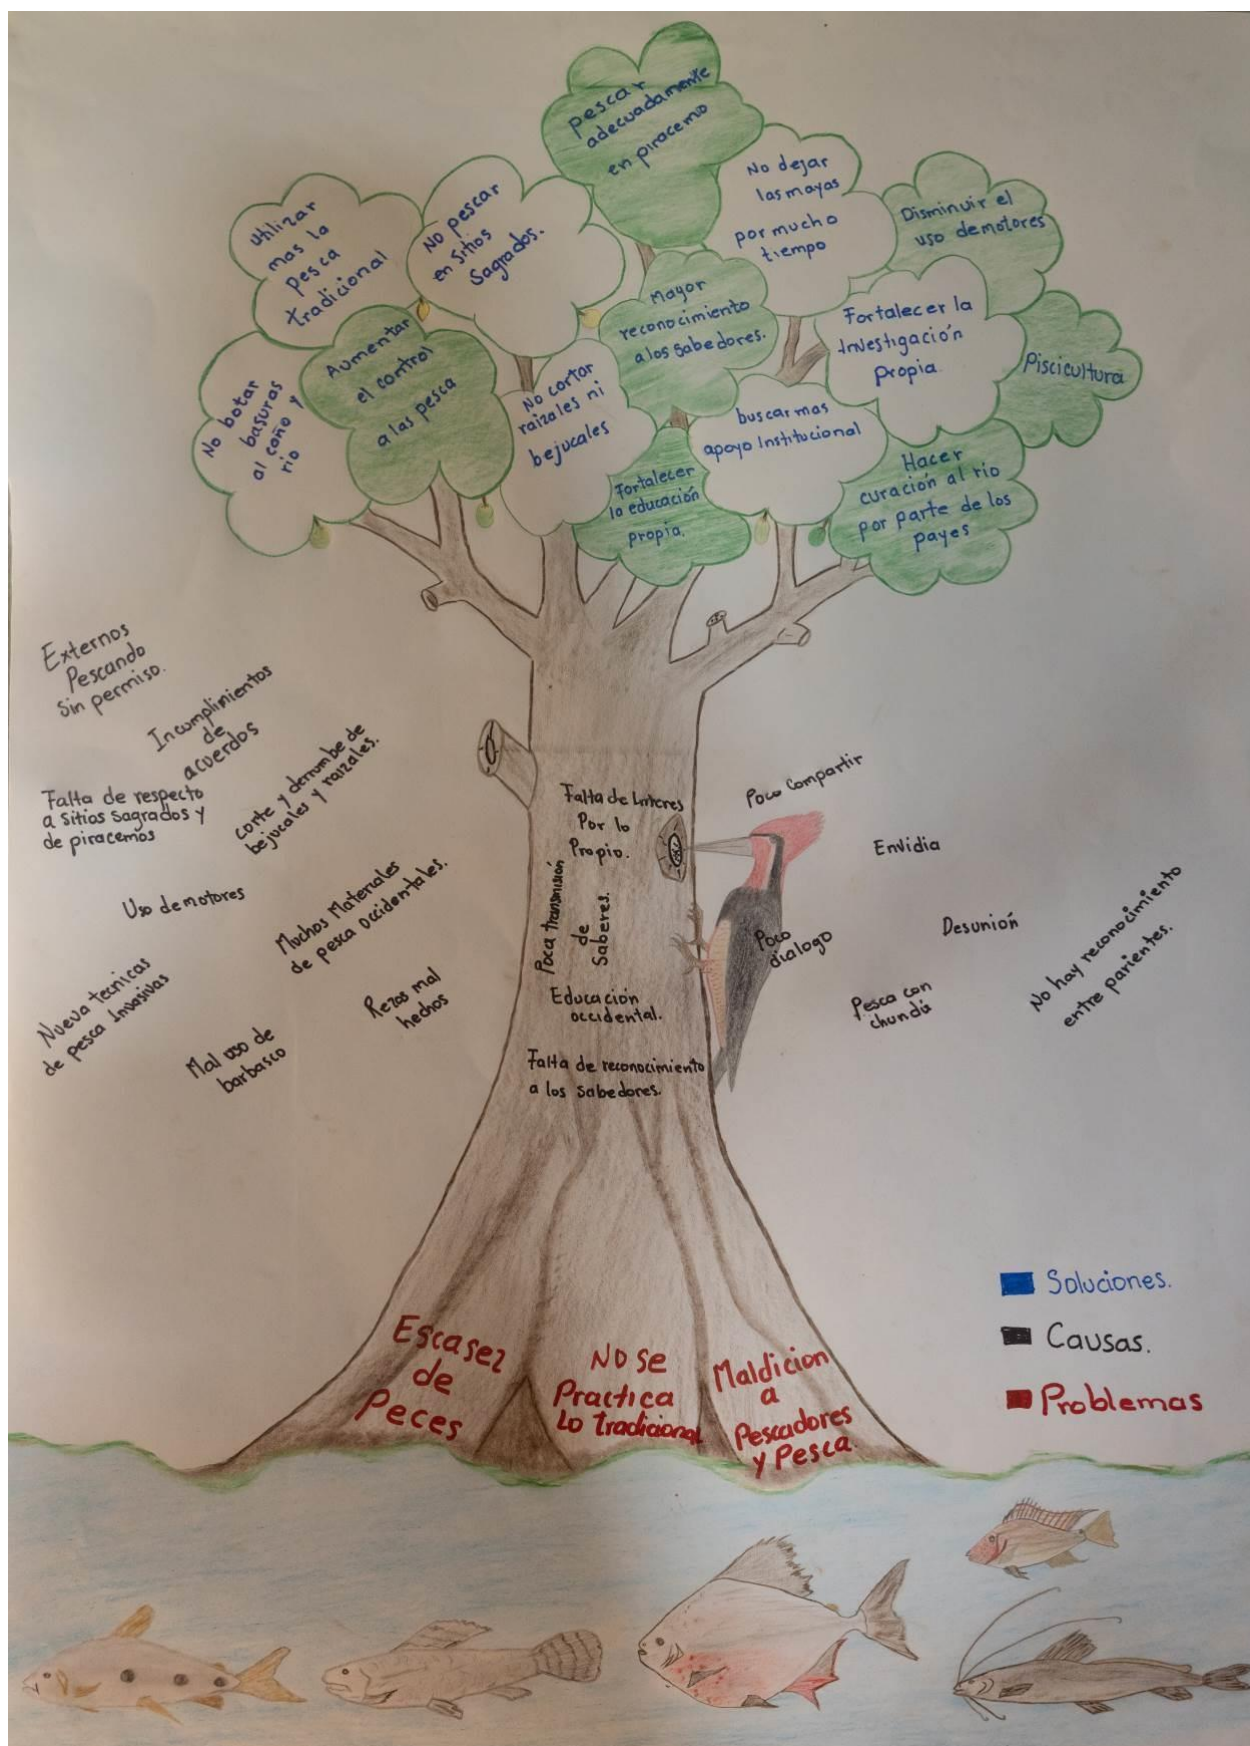 Pescar
adecuadamente
en piracemo
No dejar
las mayas
por mucho
tiempo
Disminuir el
uso de motores
Utilizar
mas la
pesca
tradicional
No pescar
en sitios
Sagrados.
Mayor
reconocimiento
a los sabedores.
Fortalecer la
Investigación
propia.
Piscicultura
No botar
basuras
al caño y
rio
Aumentar
el control
a las pesca
No cortar
raizales ni
bejucales
Fortalecer
la educación
propia.
buscar mas
apoyo Institucional
Hacer
curación al rio
por parte de los
payes
Externos
Pescando
sin permiso.
Incumplimientos
de
acuerdos
Falta de respecto
a sitios sagrados y
de piracemos
corte y derrumbe de
bejucales y raizales.
Uso de motores
Muchos Materiales
de pesca occidentales.
Nueva tecnicas
de pesca Invasivas
Mal uso de
barbasco
Rezos mal
hechos
Falta de Interes
Por lo
Propio.
Poca transmisión
de
Saberes.
Educación
occidental.
Falta de reconocimiento
a los sabedores.
Poco compartir
Envidia
Desunión
Poco
dialogo
Pesca con
chundú
No hay reconocimiento
entre parientes.
Escasez
de
Peces
No se
Practica
Lo tradicional
Maldicion
a
Pescadores
y Pesca.
Soluciones.
Causas.
Problemas